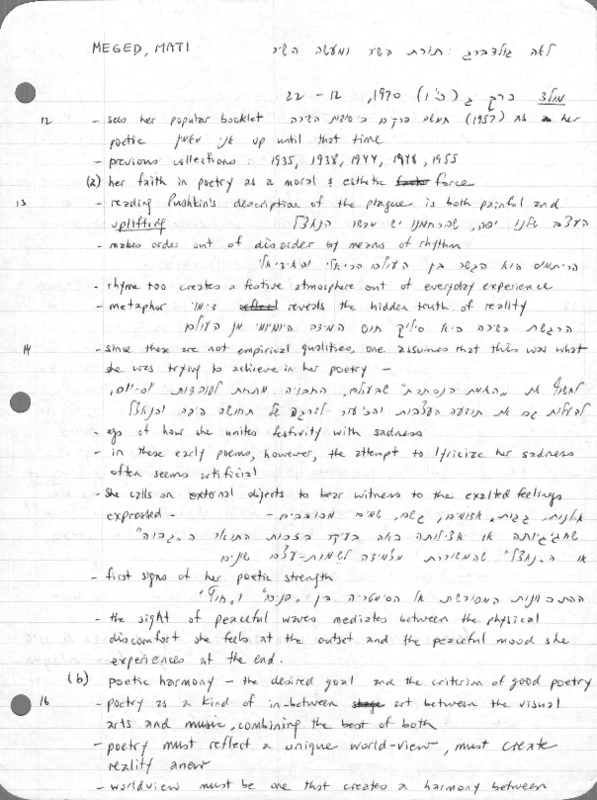 MEGED, MATI לאה גולדברג: תורת השיר ומעשה השיר
מולד כרך ג (כ"ו) 1970, 12 - 22
12 - sees her popular booklet חמשה פרקים ביסודות השירה (1957) as her
poetic אני מאמין up until that time
- previous collections: 1935, 1938, 1944, 1948, 1955
(a) her faith in poetry as a moral & esthetic force
13 - reading Pushkin's description of the plague is both painful and
uplifting העצב שלנו יפה, שברחמנו יש מבשר הנאצל
- makes order out of disorder by means of rhythm
הריתמוס הוא הגשר בין העולם הריאלי והאידיאלי
- rhyme too creates a festive atmosphere out of everyday experience
- metaphor דימוי reveals the hidden truth of reality
הרגשת בשירה היא סילוק חוס המידה היומיומי מן העולם
14 - since these are not empirical qualities, one assumes that this was what
she was trying to achieve in her poetry -
לחשוף את "האמת הנסתרת" שבעולם, החבויה מתחת לעובדות "וסיום,
להעלות גם את תודעת העצבות והכיעור לדרגה של תחושה היפה והנאצל
- egs of how she unites festivity with sadness
- in these early poems, however, the attempt to lyricize her sadness
often seems artificial
- She calls on external objects to bear witness to the exalted feelings
expressed - אילנות, גגות אדומים, גשם, שמים מכוכבים -
שחגיגיותה או אצילותה באה בעיקר בזכות התואר ה"גבוה"
או ה"נאצל" שהמשוררת מצמידה לשמות-עצם שונים
- first signs of her poetic strength
ההתכוונות המפורשת אל הסימטריה בין "פנים" ו"חוץ"
- the sight of peaceful waves mediates between the physical
discomfort she feels at the outset and the peaceful mood she
experiences at the end.
(b) poetic harmony - the desired goal and the criterion of good poetry
16 - poetry as a kind of in-between art between the visual
arts and music, combining the best of both
- poetry must reflect a unique world-view, must create
reality anew
- worldview must be one that creates a harmony between